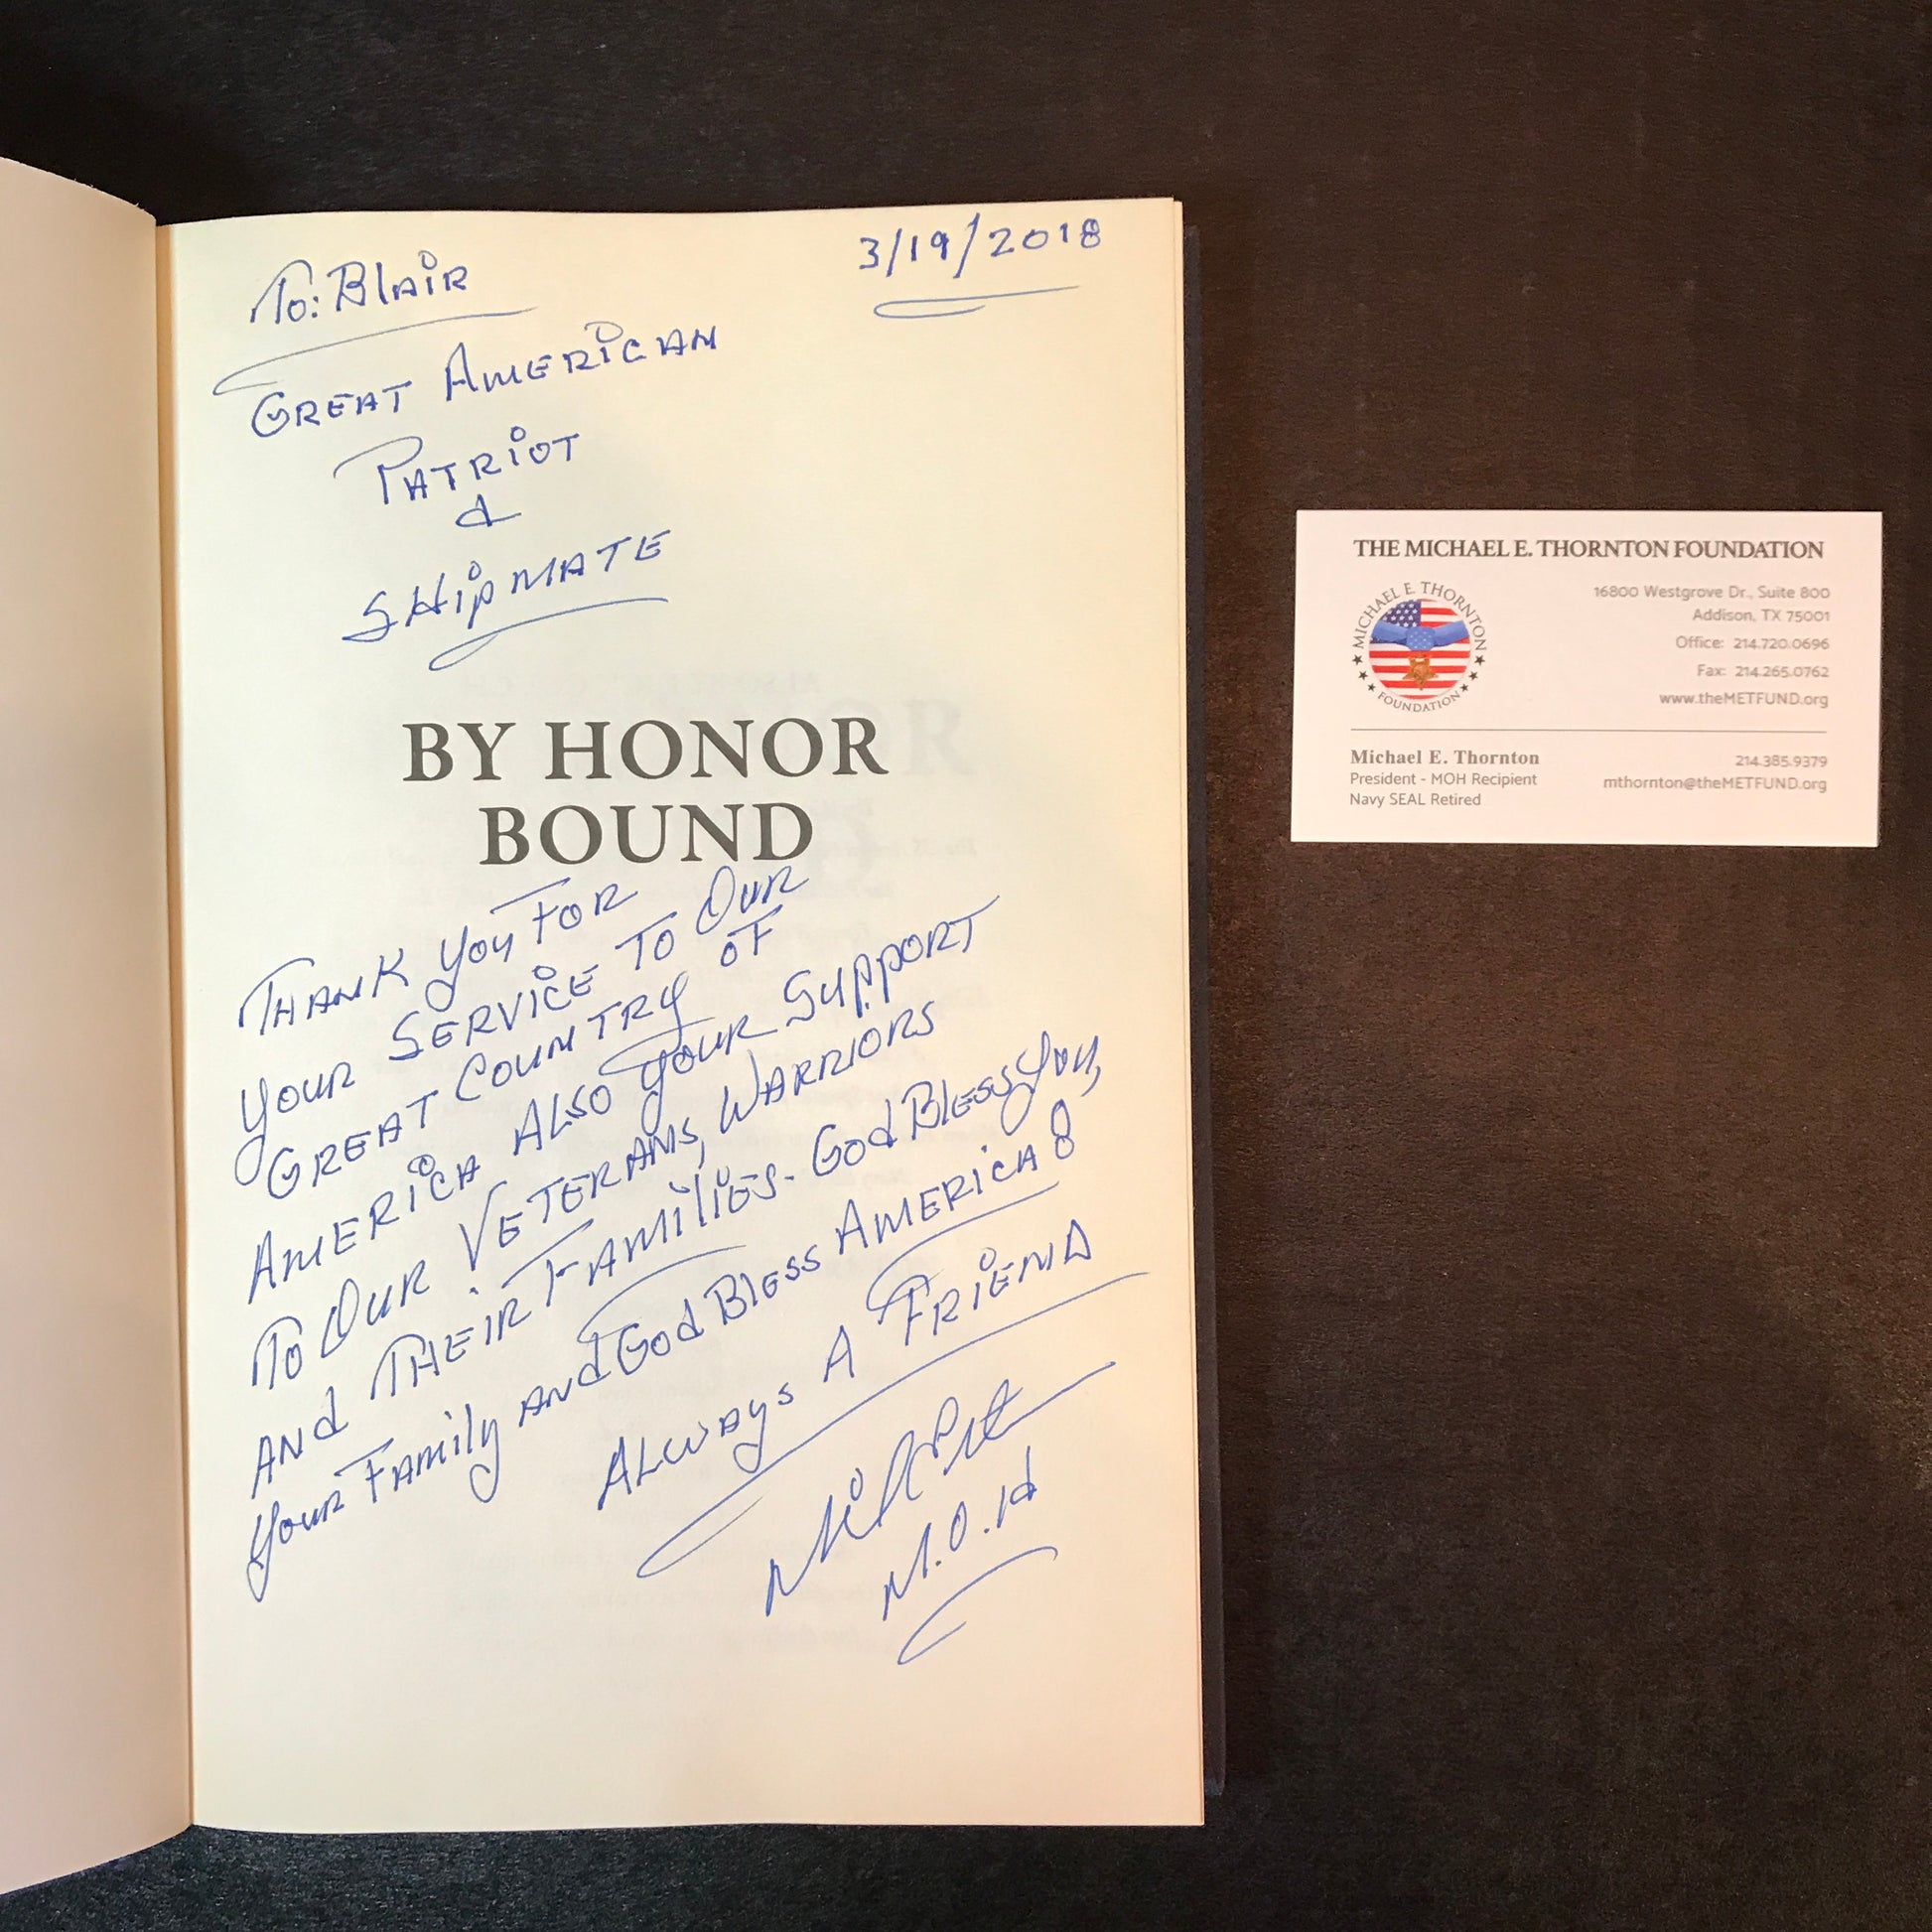 To: Blair
3/19/2018
Great American
Patriot
&
Shipmate
BY HONOR
BOUND
Thank you For
your Service To Our
Great Country of
America Also your Support
To Our Veterans, Warriors
And Their Families. God Bless you,
your Family and God Bless America
Always A Friend
M.O.H
THE MICHAEL E. THORNTON FOUNDATION
MICHAEL E. THORNTON
FOUNDATION
16800 Westgrove Dr., Suite 800
Addison, TX 75001
Office: 214.720.0696
Fax: 214.265.0762
www.theMETFUND.org
Michael E. Thornton
President - MOH Recipient
Navy SEAL Retired
214.385.9379
mthornton@theMETFUND.org